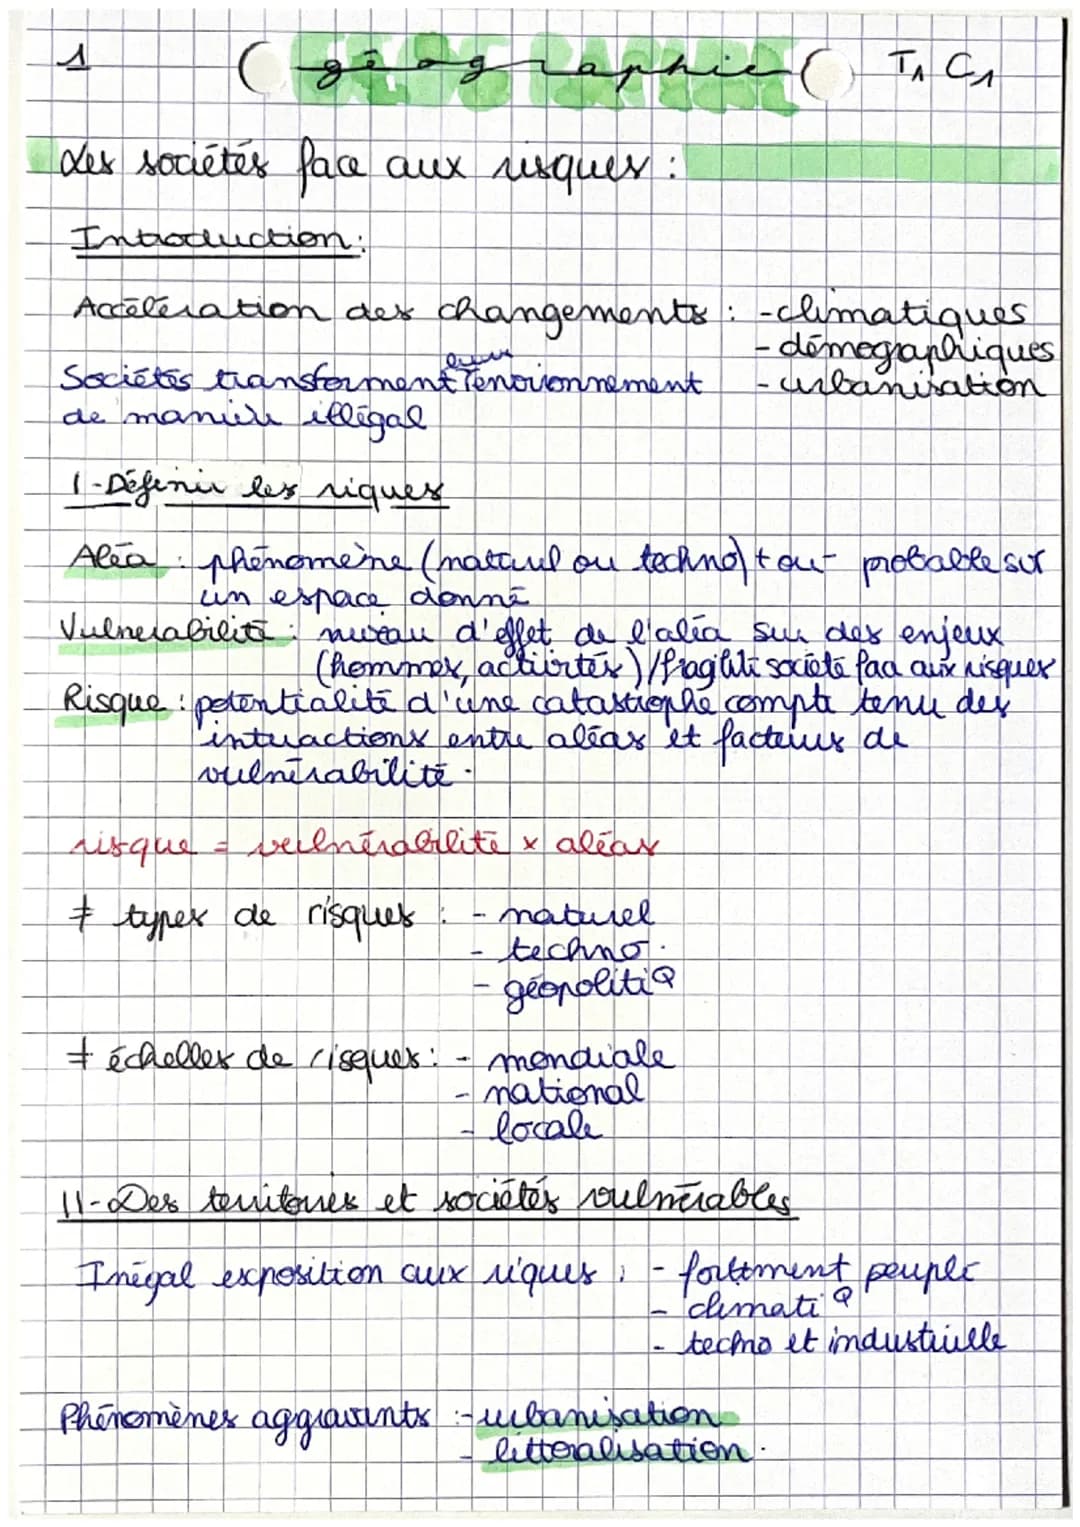 1 géographie T1 C1
Les sociétés face aux risques :
Introduction :
Accélération des changements : - climatiques
- démographiques
leur
Sociétés transforment l'environnement - urbanisation
de manière illégal
I - Définir les riques
Aléa : phénomène (naturel ou techno) + ou - probable sur
un espace donné
Vulnérabilité : niveau d'effet de l'aléa sur des enjeux
(hommes, activités) / fragilité société face aux risques
Risque : potentialité d'une catastrophe compte tenu des
intéractions entre aléas et facteurs de
vulnérabilité.
risque = vulnérabilité x aléas
≠ types de risques : - naturel
- techno.
- géopolitiQ
≠ échelles de risques : - mondiale
- national
- locale
II - Des territoires et sociétés vulnérables
Inégal exposition aux riques : - fortement peuplé
- climatiQ
- techno et industrielle
Phénomènes aggravants : - urbanisation
- littoralisation.